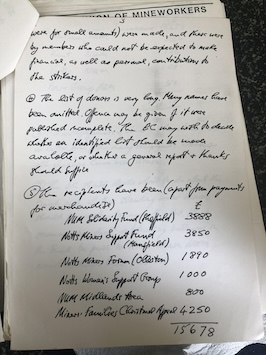 ION OF MINEWORKERS
3
were for small amounts) were made, and these were
by members who could not be expected to make
financial, as well as personal, contributions to
the strikers.
④ The list of donors is very long. Many names have
been omitted. Offence may be given if it were
published incomplete. The EC may wish to decide
whether an identified list should be made
available, or whether a general report & thanks
should suffice
⑤ The recipients have been (apart from payments
for merchandise) £
NUM Solidarity Fund (Sheffield) 3888
Notts Miners Support Fund 3850
(Mansfield)
Notts Miners Forum (Ollerton) 1890
Notts Women's Support Group 1000
NUM Midlands Area 800
Miners' Families Christmas Appeal 4250
15678